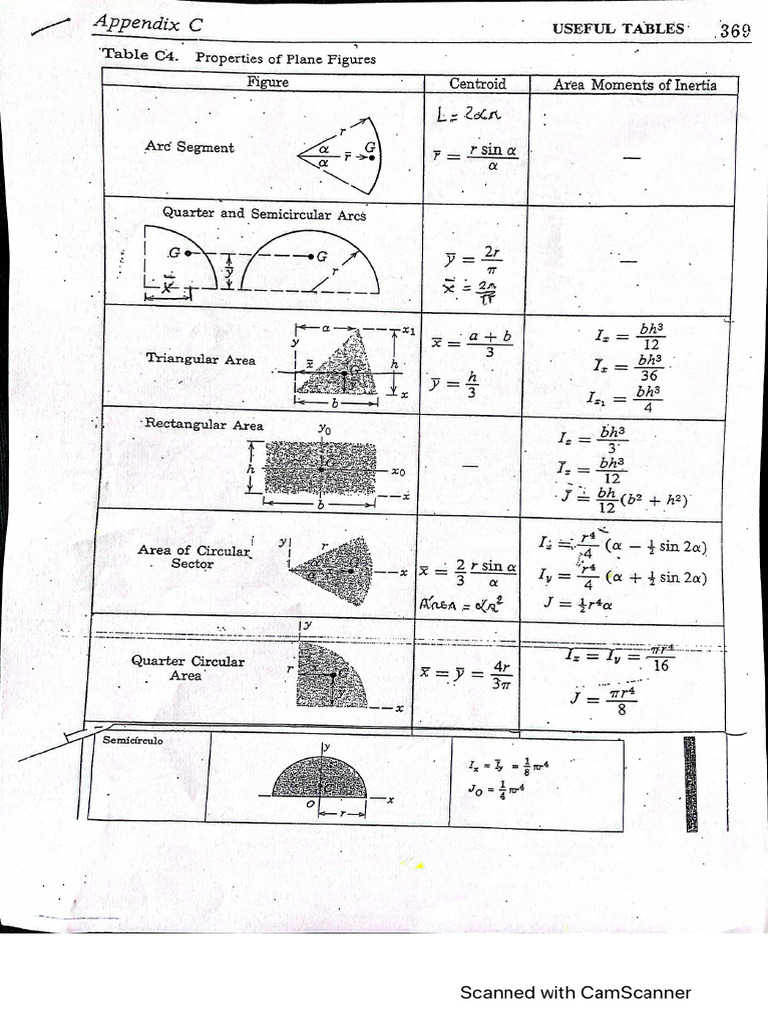 Appendix C
USEFUL TABLES 369
Table C4. Properties of Plane Figures
Figure Centroid Area Moments of Inertia
Arc Segment
r
α
α
r̄
G
L = 2αr
r̄ = r sin α / α
—
Quarter and Semicircular Arcs
G
G
ȳ
r
x̄
ȳ = 2r / π
x̄ = 2r / π
—
Triangular Area
a
x1
y
x̄
G
h
y
x
b
x̄ = a + b / 3
ȳ = h / 3
Ix = bh³ / 12
Īx = bh³ / 36
Ix1 = bh³ / 4
Rectangular Area
y0
h
G
x0
x
b
—
Ix = bh³ / 3
Īx = bh³ / 12
J̄ = bh / 12 (b² + h²)
Area of Circular
Sector
y
r
α
α
x̄
G
x
x̄ = 2 / 3 r sin α / α
AREA = αr²
Ix = r⁴ / 4 (α − ½ sin 2α)
Iy = r⁴ / 4 (α + ½ sin 2α)
J = ½ r⁴α
Quarter Circular
Area
y
r
x̄
G
ȳ
x
x̄ = ȳ = 4r / 3π
Ix = Iy = πr⁴ / 16
J = πr⁴ / 8
Semicírculo
y
C
O
x
r
Ix = Īy = 1/8 πr⁴
JO = 1/4 πr⁴
Scanned with CamScanner